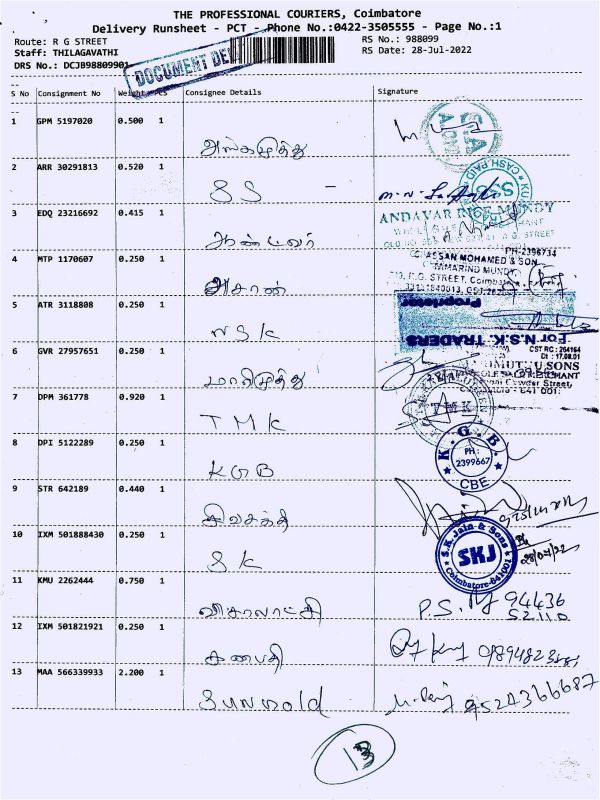 THE PROFESSIONAL COURIERS, Coimbatore
Delivery Runsheet - PCT - Phone No.:0422-3505555 - Page No.:1
Route: R G STREET
RS No.: 988099
Staff: THILAGAVATHI
RS Date: 28-Jul-2022
DRS No.: DCJB98809901
DOCUMENT DE
S No Consignment No Weight PCS Consignee Details Signature
1 GPM 5197020 0.500 1
2 ARR 30291813 0.520 1
SS
CASH PAID
3 EDQ 23216692 0.415 1
ஆண்டவர்
ANDAVAR RICE MUNDY
4 MTP 1170607 0.250 1
அசான்
PH-2396734
HASSAN MOHAMED & SON
TAMARIND MUNDY
R.G. STREET,
5 ATR 3118808 0.250 1
NSK
Proprietor
For N.S.K. TRADERS
6 GVR 27957651 0.250 1
மாரிமுத்து
CST RC: 264164
Dt : 17.08.01
SONS
7 DPM 361778 0.920 1
TMK
TMK
8 DPI 5122289 0.250 1
KGB
K.G.B.
PH:
2399667
CBE
9 STR 642189 0.440 1
சிவசக்தி
10 IXM 501888430 0.250 1
SK
S.K. Jain & Sons
SKJ
Coimbatore-641001
28/07/22
11 KMU 2262444 0.750 1
விசாலாட்சி
P.S. 94436
52110
12 IXM 501821921 0.250 1
கணபதி
13 MAA 566339933 2.200 1
Sunmold
9524366687
13